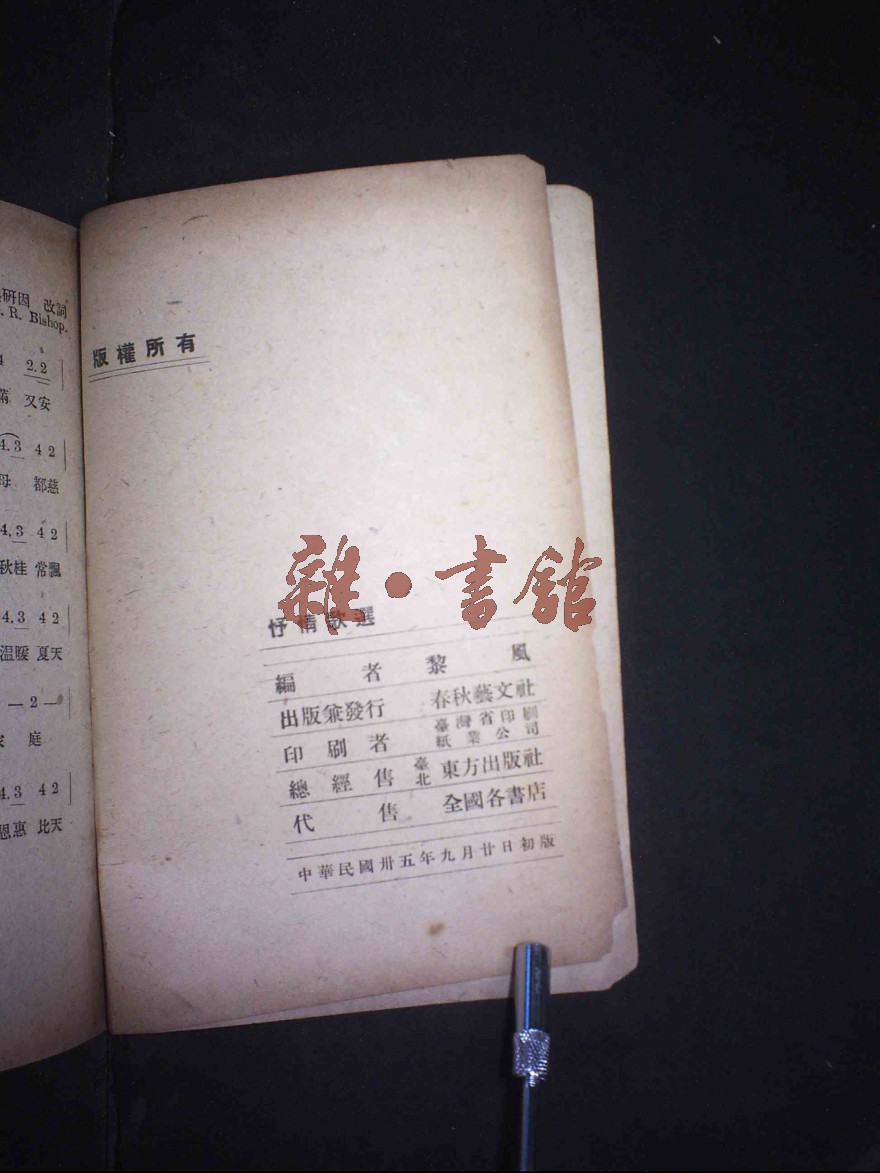 研因 改詞
R. Bishop.
2.2
又安
4.3 4 2
母 都慈
4.3 4 2
秋桂 常飄
4.3 4 2
温暖 夏天
— 2 —
庭
4.3 4 2
恩惠 比天
版權所有
雜·書舘
抒情歌選
編者 黎風
出版兼發行 春秋藝文社
印刷者 臺灣省印刷紙業公司
總經售 臺北 東方出版社
代售 全國各書店
中華民國卅五年九月廿日初版